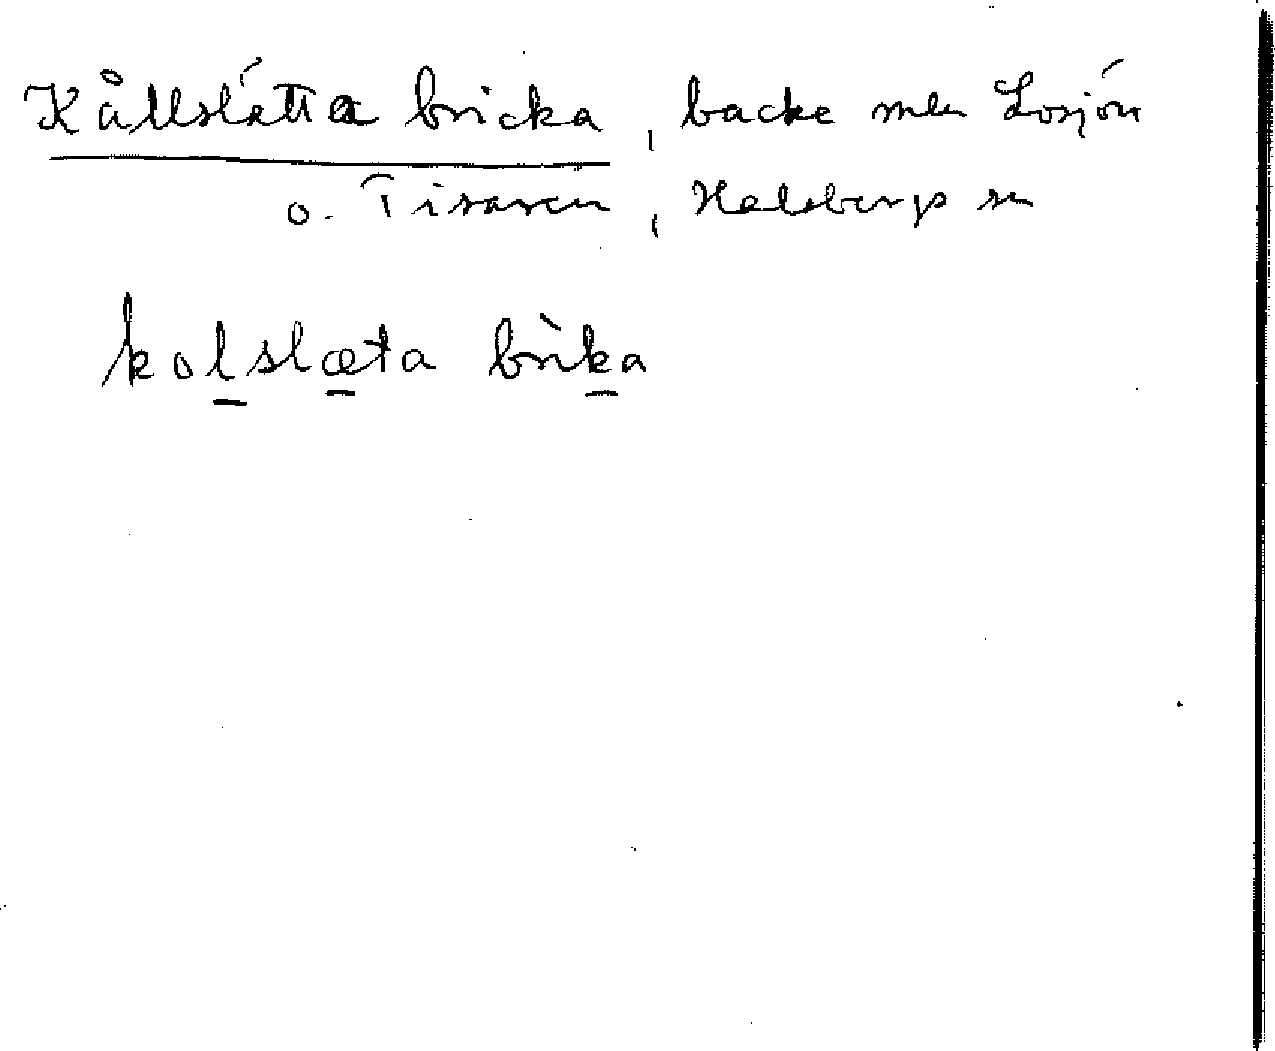 Kållslätta bricka, backe mln Losjön
o. Tisaren, Halsbergs sn
kolslæta brìka